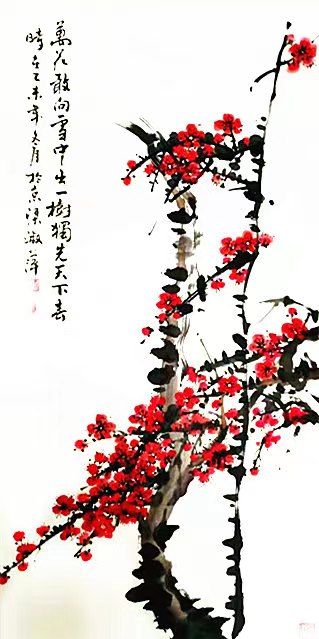 萬花敢向雪中出一樹獨先天下春
時在乙未年冬月於京梁淑萍